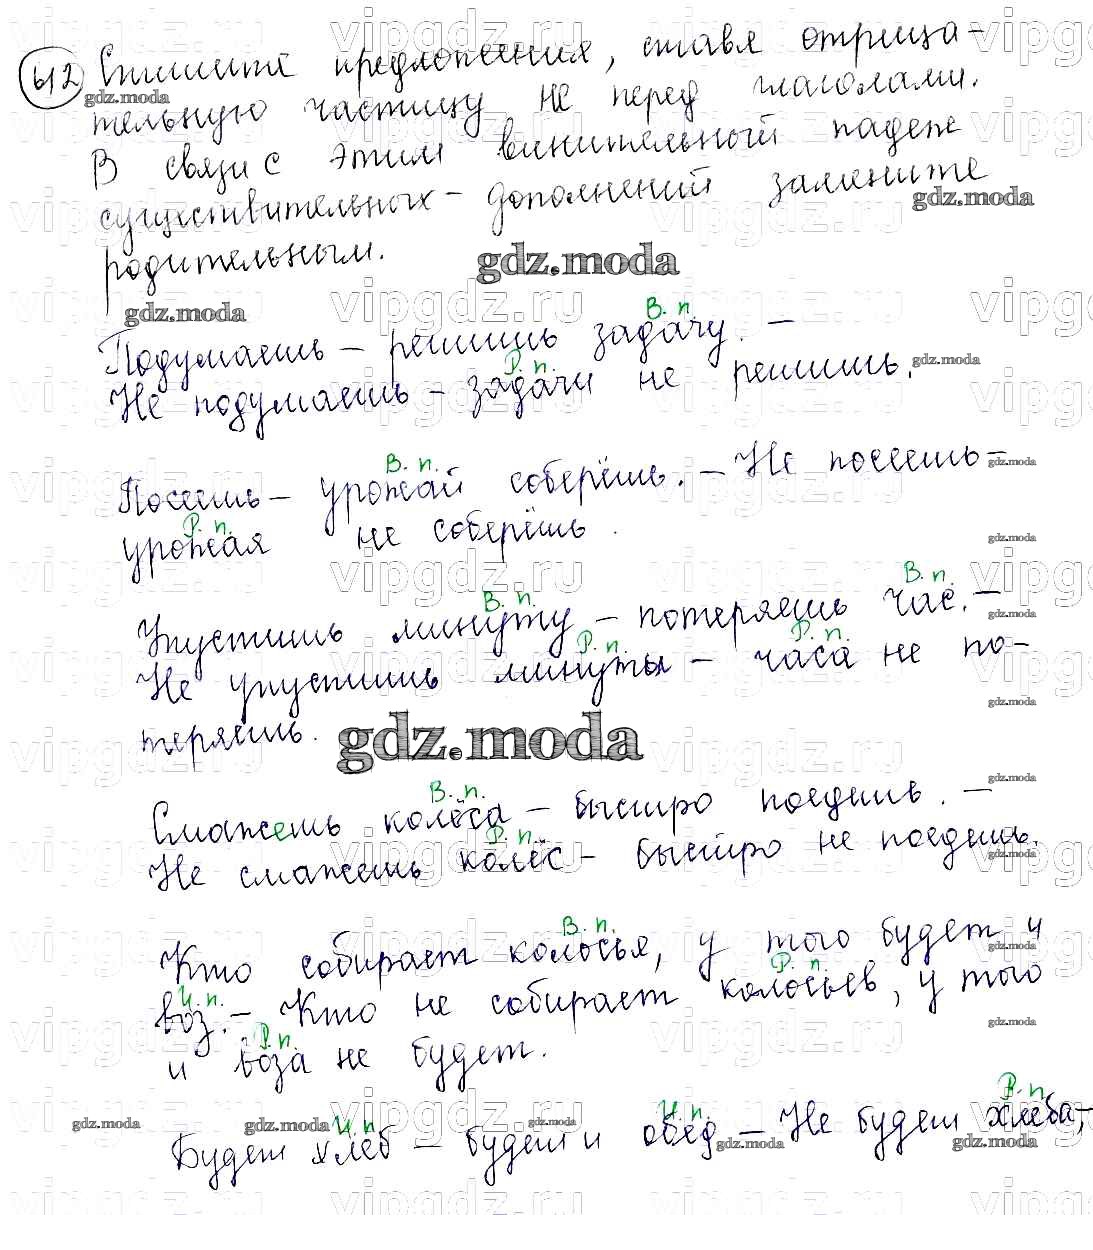 612 Спишите предложения, ставя отрица-
тельную частицу не перед глаголами.
В связи с этим винительный падеж
существительных - дополнений замените
родительным.
В. п.
Подумаешь – решишь задачу. –
Р. п.
Не подумаешь – задачи не решишь.
В. п.
Посеешь – урожай соберёшь. – Не посеешь –
Р. п.
урожая не соберёшь.
В. п. В. п.
Упустишь минуту – потеряешь час. –
Р. п. Р. п.
Не упустишь минуты – часа не по-
теряешь.
В. п.
Смажешь колёса – быстро поедешь. –
Р. п.
Не смажешь колёс – быстро не поедешь.
В. п.
Кто собирает колосья, у того будет и
И. п. Р. п.
воз. – Кто не собирает колосьев, у того
Р. п.
и воза не будет.
И. п. И. п. Р. п.
Будет хлеб – будет и обед – Не будет хлеба,
gdz.moda
vipgdz.ru